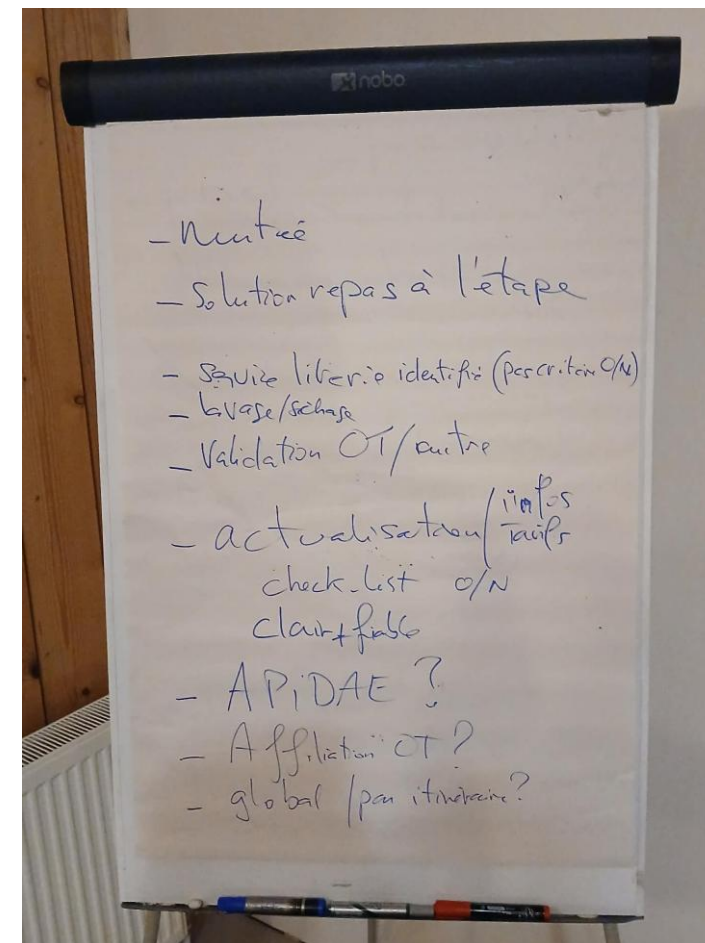 nobo
- Nuitée
- Solution repas à l'étape
- Service literie identifié (pas critère O/N)
- lavage/séchage
- Validation OT/autre
- actualisation/infos
Tarifs
check-list O/N
clair + fiable
- APiDAE ?
- Affiliation OT ?
- global / par itinéraire ?